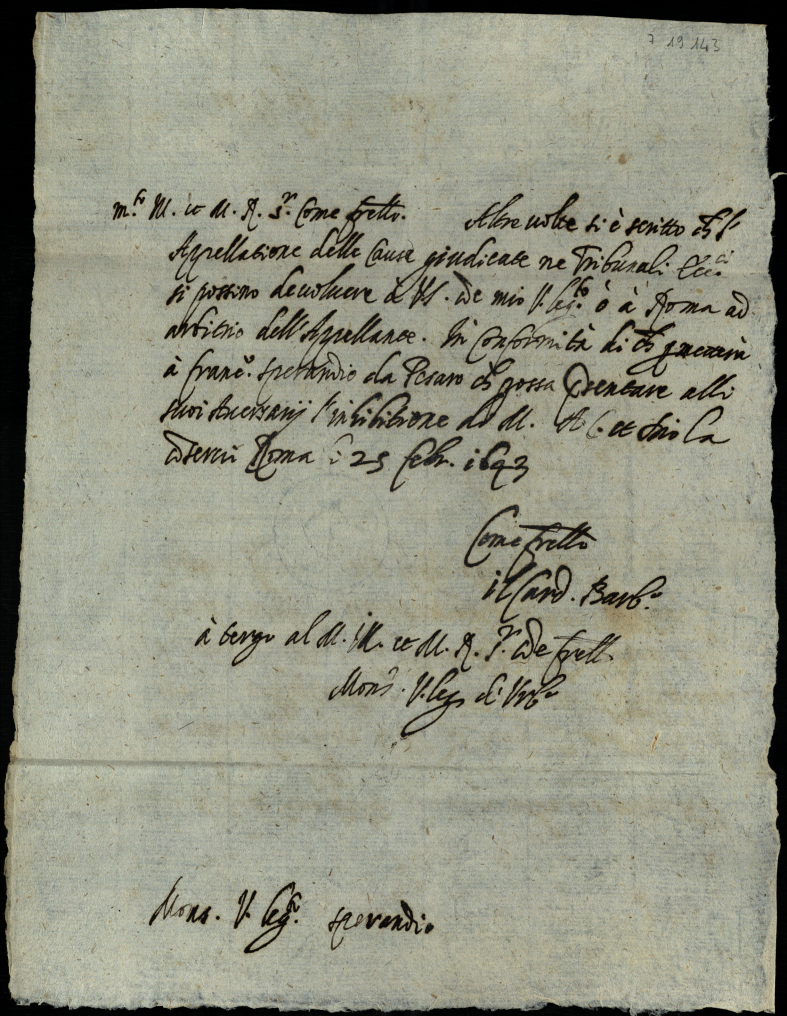 7 19 143
m.to Ill. et M. R. S.r Come fratello. Altre volte si è scritto ch l'
Appellatione delle Cause giudicate ne Tribunali Ecc.ci
si possino devolvere à VS. come mio V. leg.to ò à Roma ad
arbitrio dell'Appellante. In Conformità di ch
à Franc.o Sperandio da Pesaro ch possa presentare alli
suoi Aversarij l'inhibitione di M. A. C. et Dio la
conservi Roma li 25 Feb. 1643
Come fratello
il Card. Barb.o
à tergo al M. Ill. et M. R. S.r Come fratell.
Mons. V. leg. di Urb.o
Mons. V. leg.to Sperandio